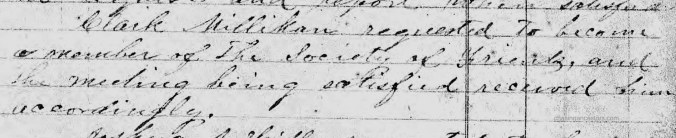 and report when satisfied
Clark Millikan requested to become
a member of The Society of Friends, and
the meeting being satisfied received him
accordingly.